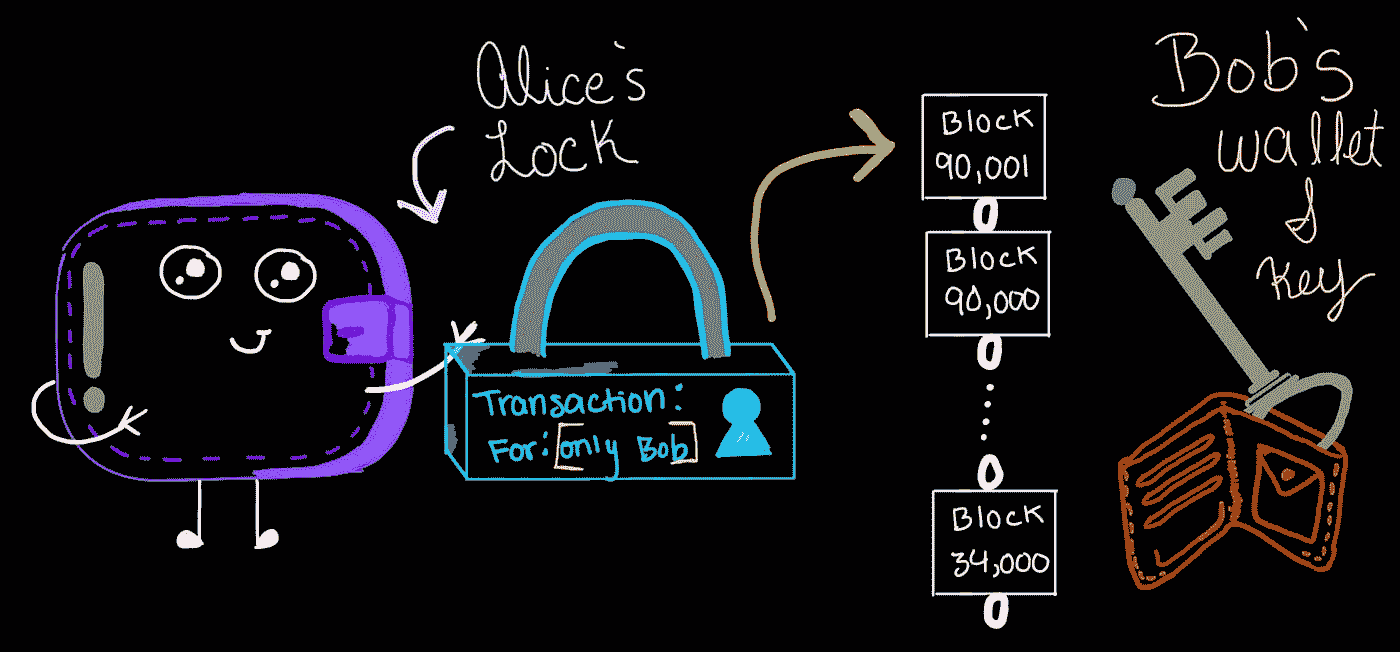 Alice's
Lock
Transaction:
For: [only Bob]
Block
90,001
Block
90,000
Block
34,000
Bob's
wallet
&
key